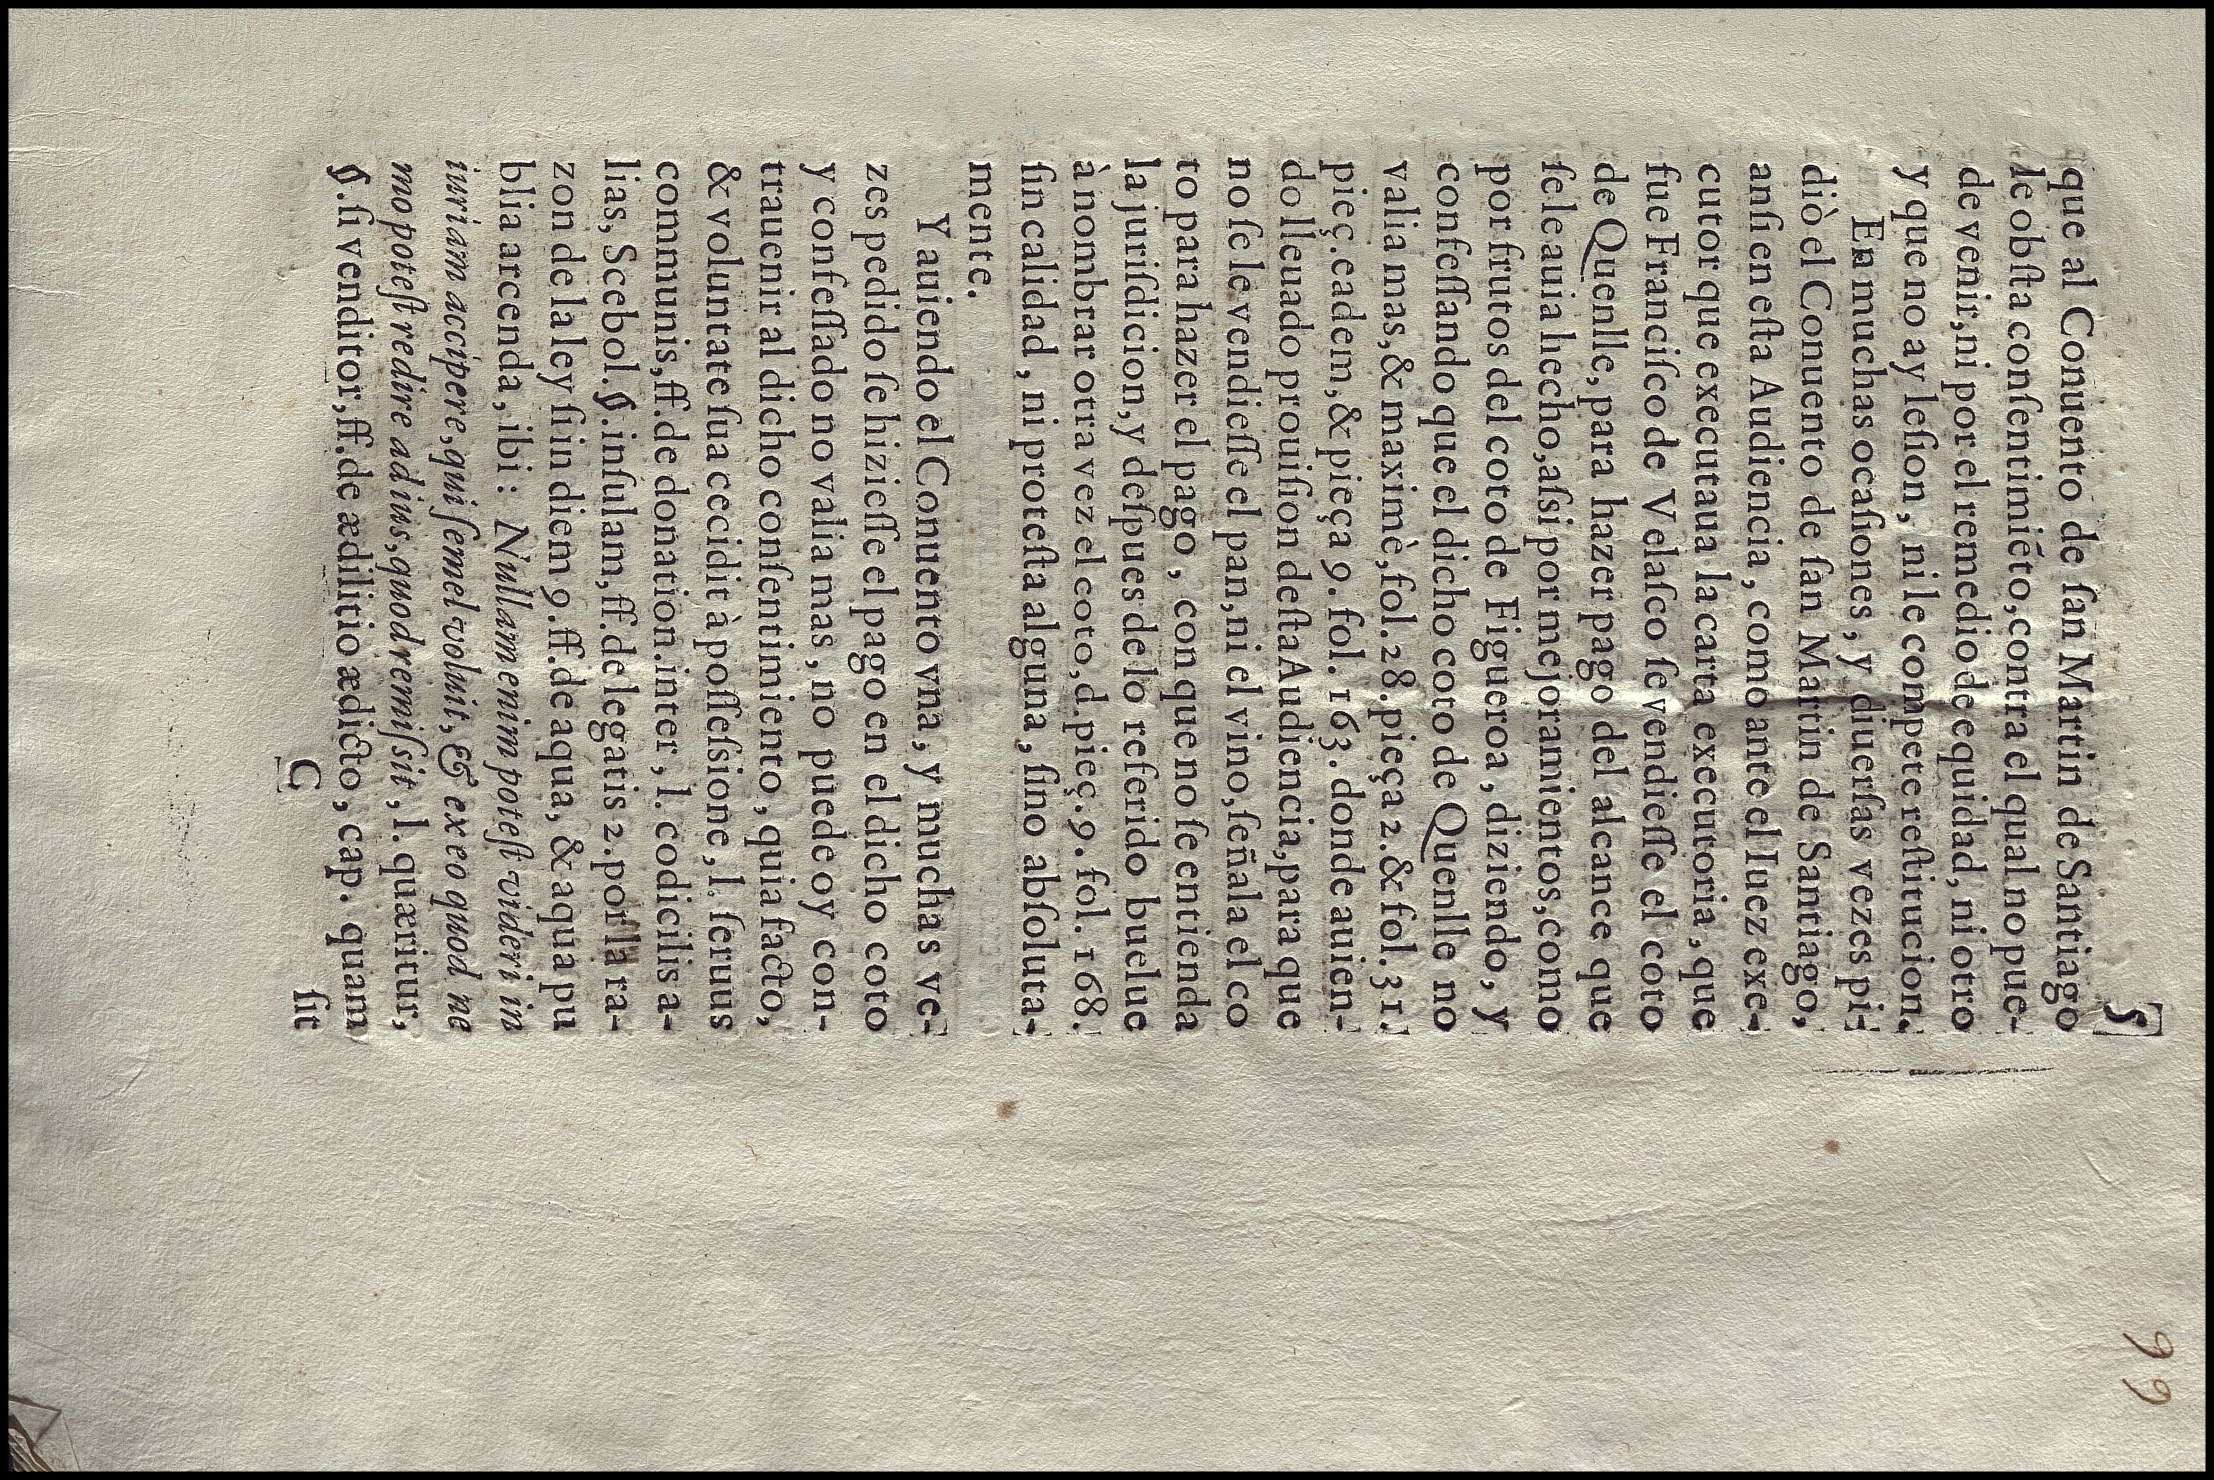 99
5
que al Conuento de ſan Martin de Santiago
le obſta conſentimiẽto, contra el qual no pue-
de venir, ni por el remedio de equidad, ni otro
y que no ay leſion, ni le compete reſtitucion.
En muchas ocaſiones, y diuerſas vezes pi-
diò el Conuento de ſan Martin de Santiago,
anſi en eſta Audiencia, como ante el Iuez exe-
cutor que executaua la carta executoria, que
fue Franciſco de Velaſco ſe vendieſſe el coto
de Quenlle, para hazer pago del alcance que
ſe le auia hecho, aſsi por mejoramientos, como
por frutos del coto de Figueroa, diziendo, y
confeſſando que el dicho coto de Quenlle no
valia mas, & maximè, fol. 28. pieça 2. & fol. 31.
pieç. eadem, & pieça 9. fol. 163. donde auien-
do lleuado prouiſion deſta Audiencia, para que
no ſe le vendieſſe el pan, ni el vino, ſeñala el co
to para hazer el pago, con que no ſe entienda
la juriſdicion, y deſpues de lo referido buelue
à nombrar otra vez el coto, d. pieç. 9. fol. 168.
ſin calidad, ni proteſta alguna, ſino abſoluta-
mente.
Y auiendo el Conuento vna, y muchas ve-
zes pedido ſe hizieſſe el pago en el dicho coto
y confeſſado no valia mas, no puede oy con-
trauenir al dicho conſentimiento, quia facto,
& voluntate ſua cecidit à poſſeſsione, l. ſeruus
communis, ff. de donation. inter, l. codicilis a-
lias, Scebol. §. inſulam, ff. de legatis 2. por la ra-
zon de la ley ſi in diem 9. ff. de aqua, & aqua pu
blia arcenda, ibi: Nullam enim poteſt videri in
iuriam accipere, qui ſemel voluit, & ex eo quod ne
mo poteſt redire ad ius, quod remiſsit, l. quæritur,
§. ſi venditor, ff. de ædilitio ædicto, cap. quam
C
ſit